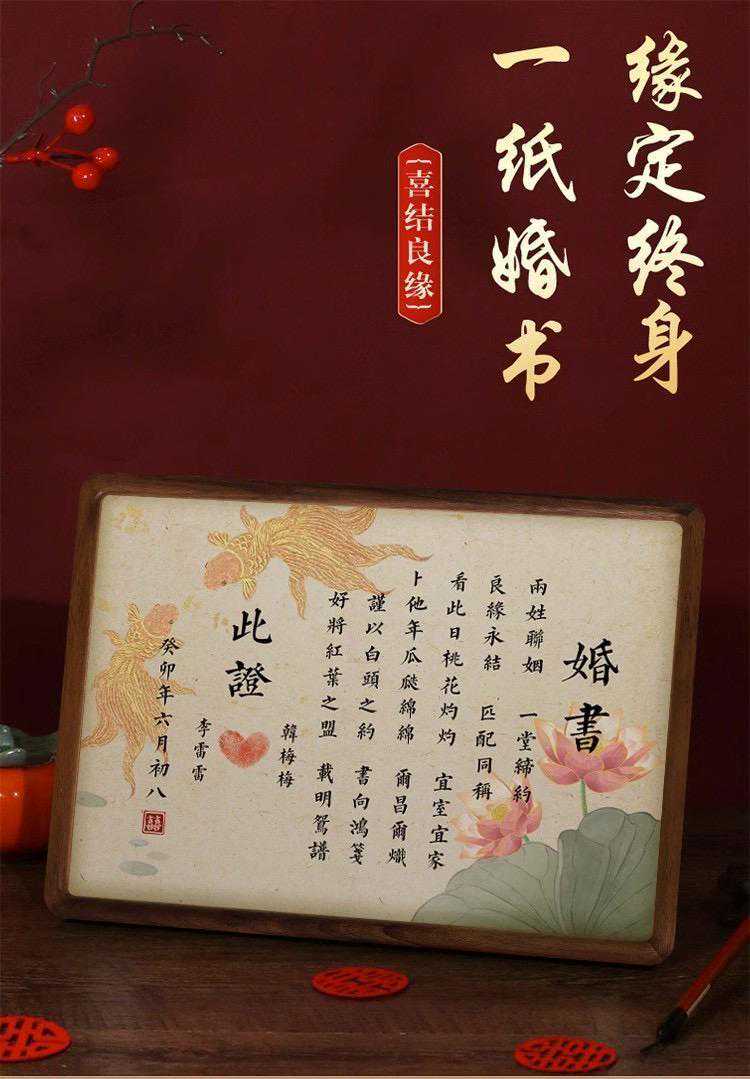 缘定终身
一纸婚书
喜结良缘
婚書
兩姓聯姻 一堂締約
良緣永結 匹配同稱
看此日桃花灼灼 宜室宜家
卜他年瓜瓞綿綿 爾昌爾熾
謹以白頭之約 書向鴻箋
好將紅葉之盟 載明鴛譜
此證
韓梅梅
李雷雷
癸卯年六月初八
囍